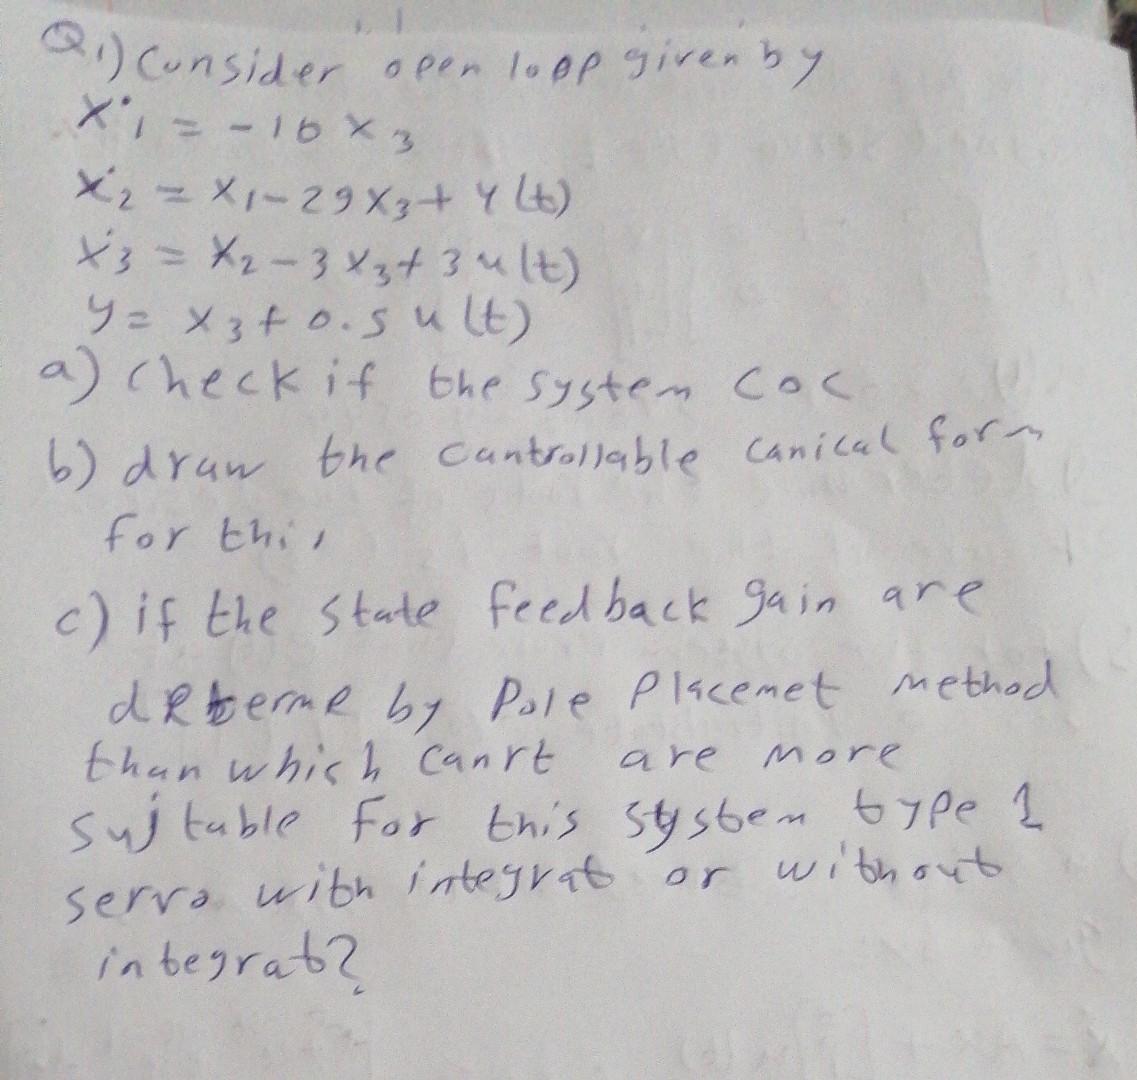 Q1) Consider open loop given by
x˙1 = -16 x3
x˙2 = x1-29x3+ 4(t)
x˙3 = x2-3x3+3u(t)
y= x3+0.5 u(t)
a) check if the system COC
b) draw the cantrollable canical form
for this
c) if the state feedback gain are
determe by Pole Placemet method
than which canrt are more
sujtable for this system type 1
servo with integrat or without
integrat?